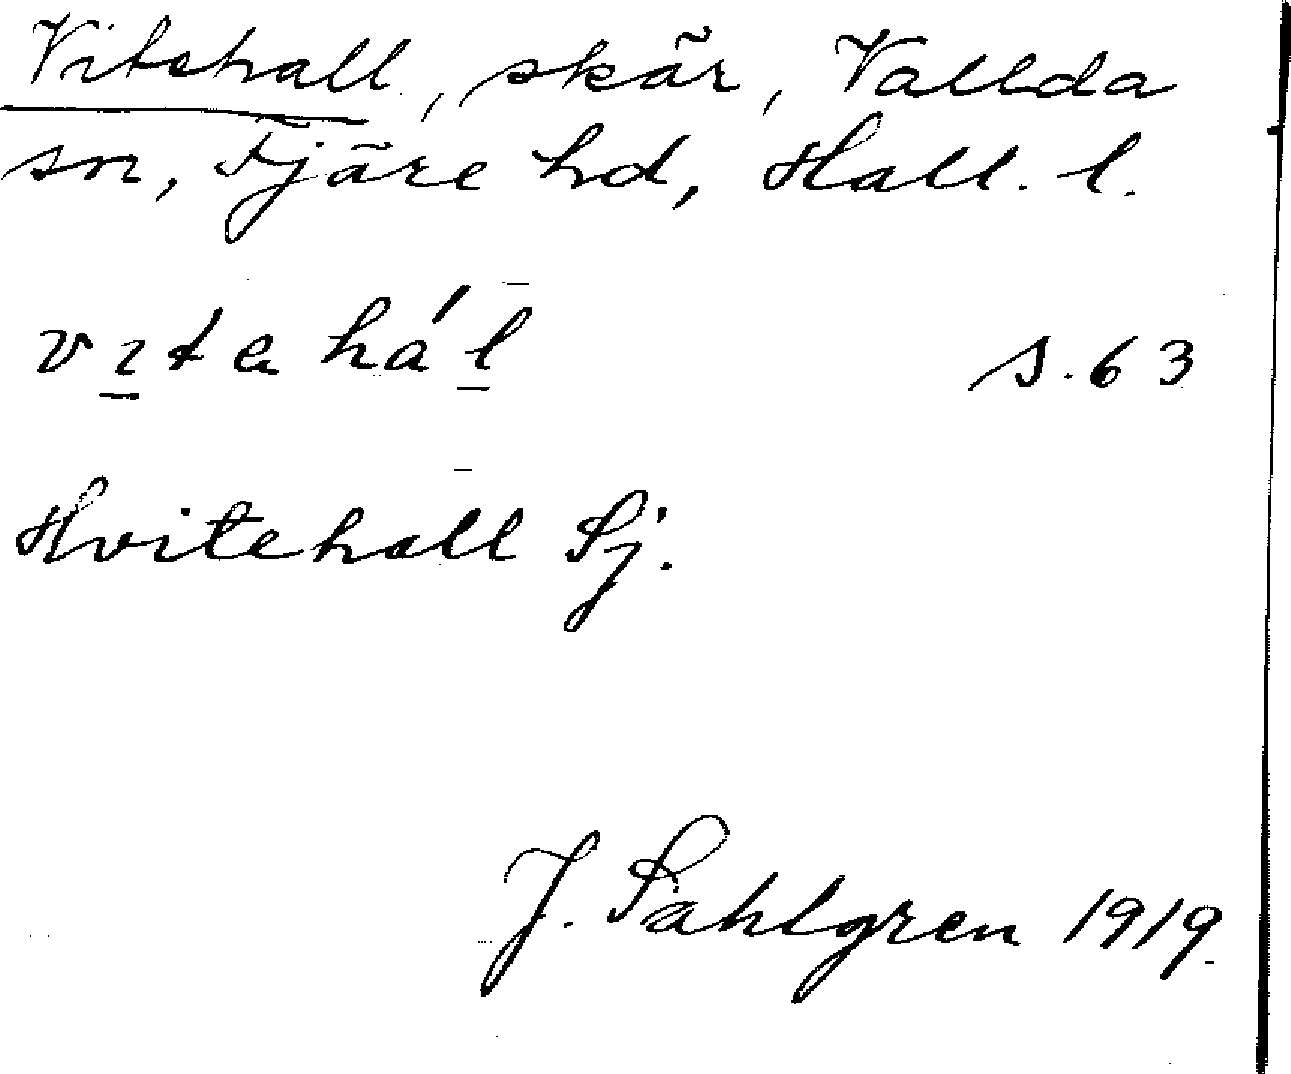 Vitehall, skär, Vallda
sn, Fjäre hd, Hall. l.
vı̲ta há l̲ s. 63
Hvitehall Sj.
J. Sahlgren 1919.